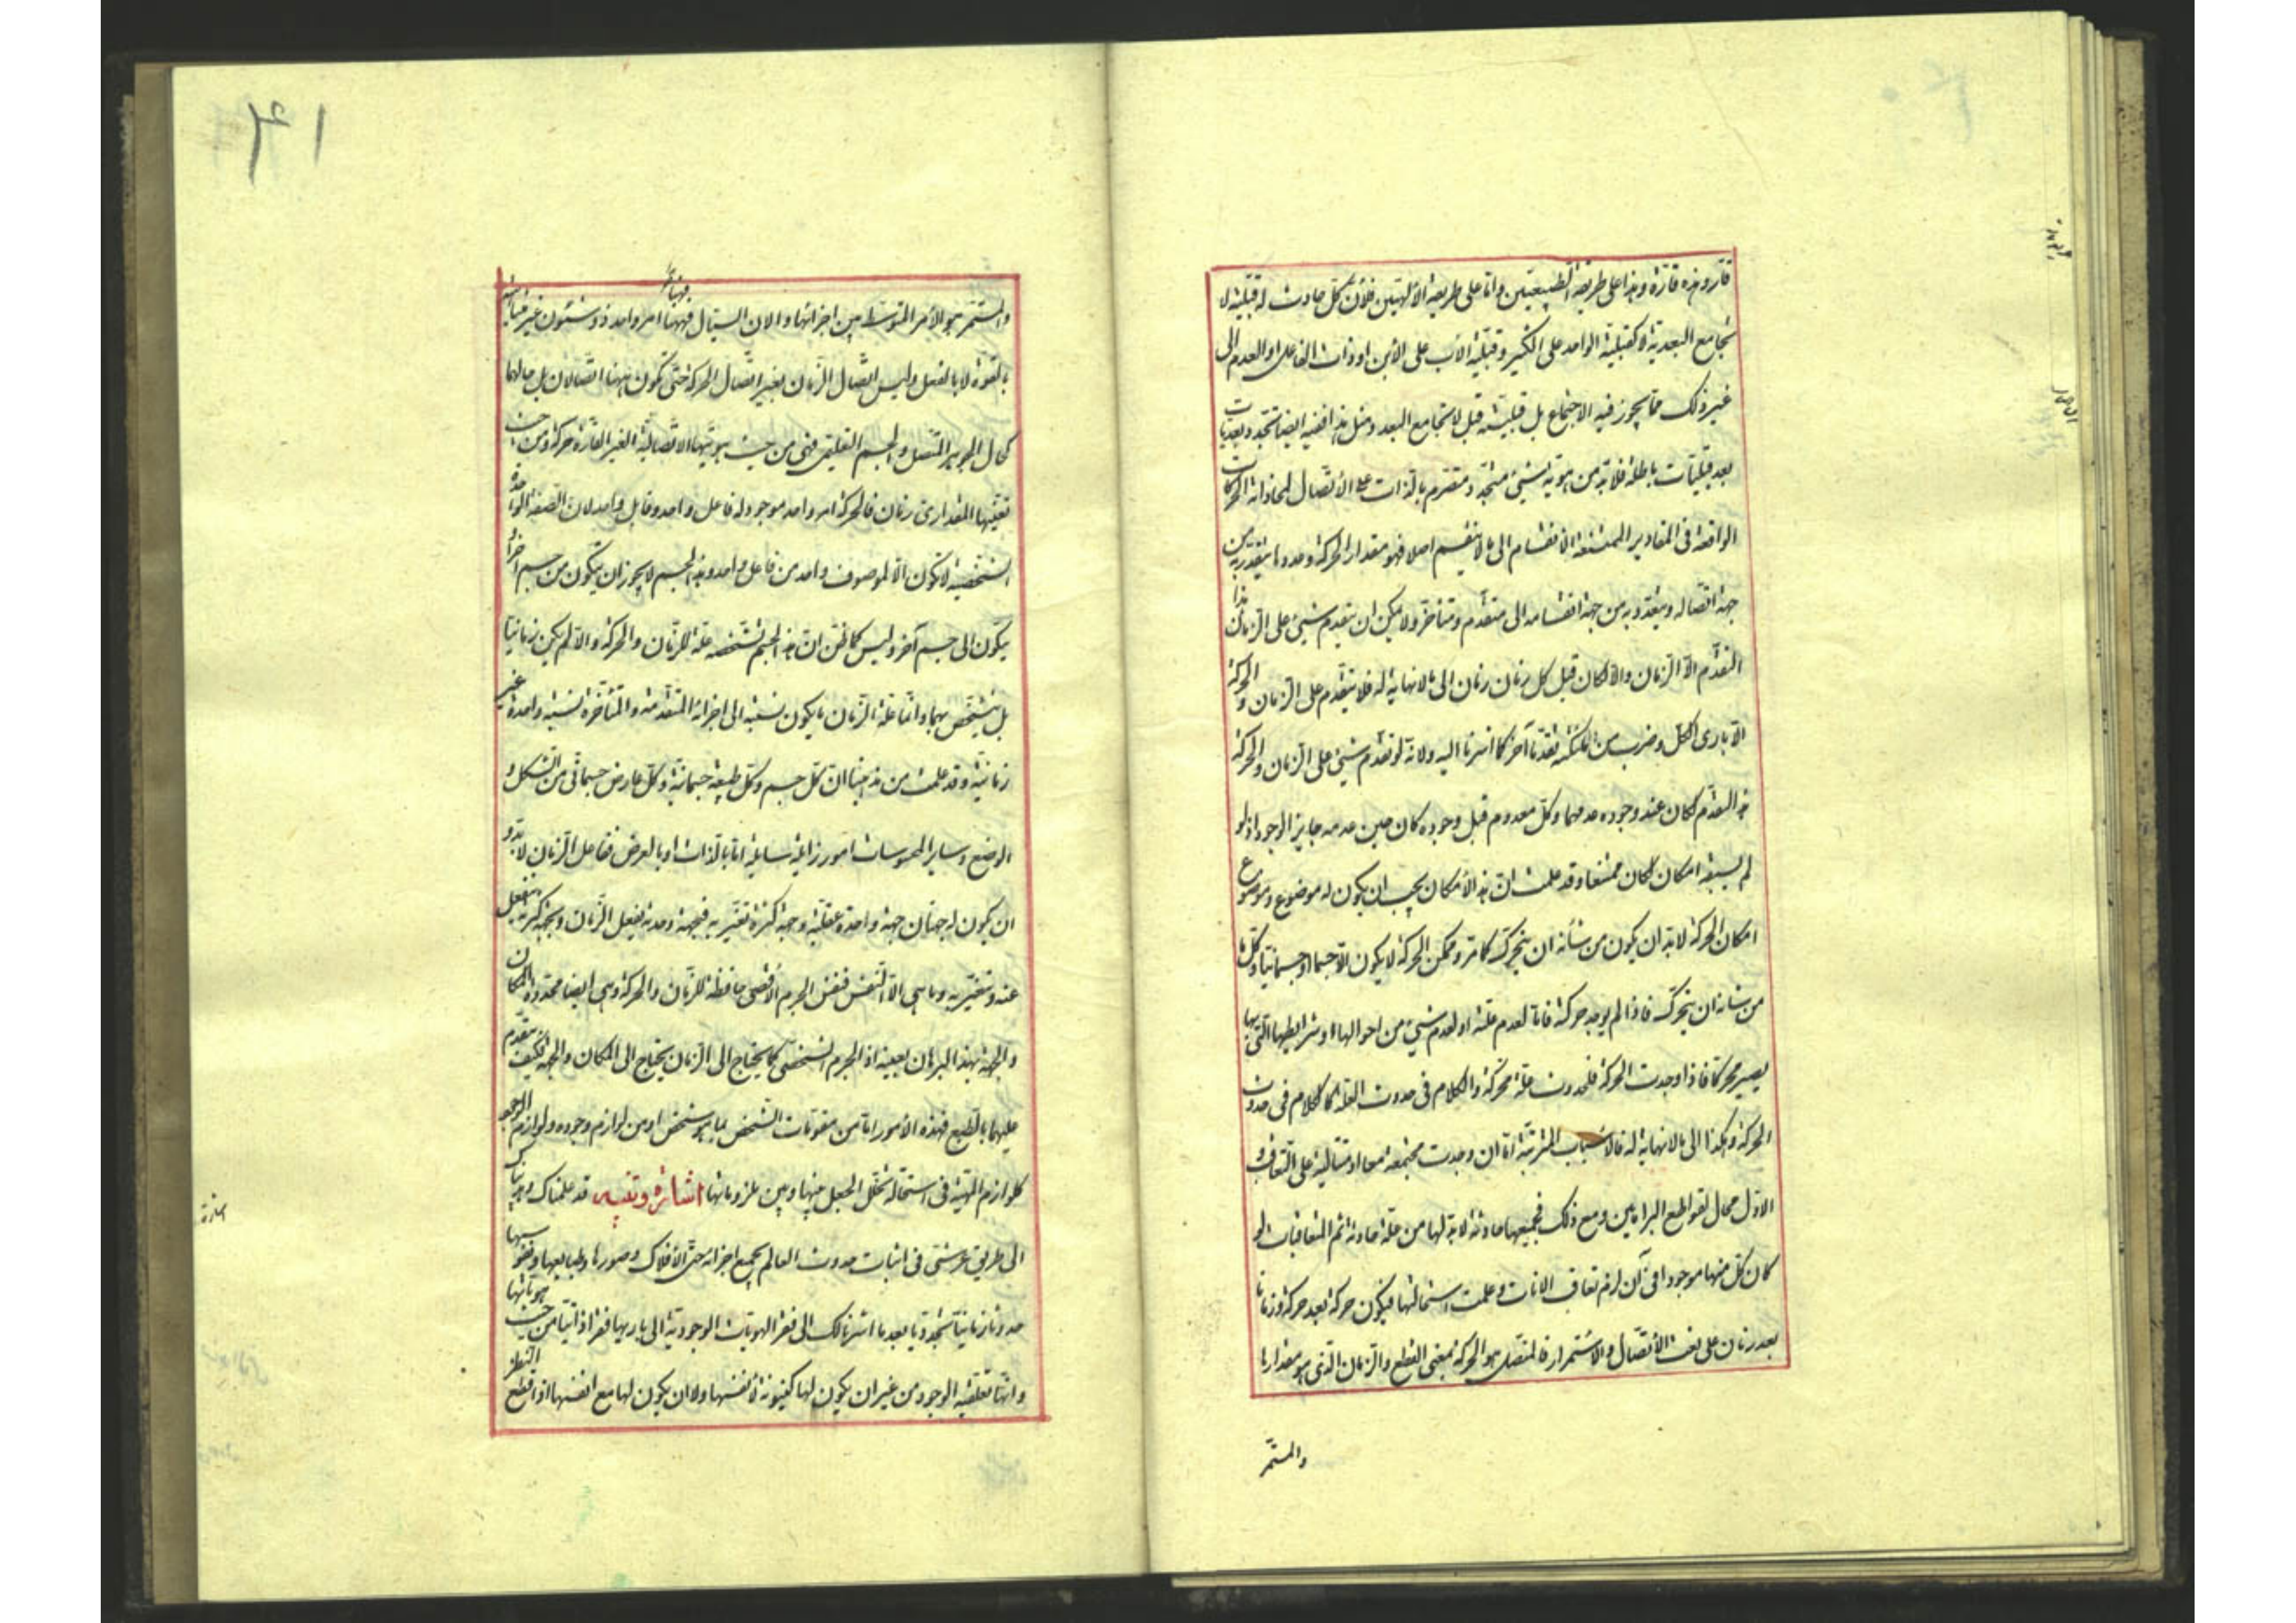 قارّ وهذه قارّة وهذا على طريقة الطبيعيّين وامّا على طريقة الالهيّين فلأنّ كلّ حادث له قبليّة لا
تجامع البعديّة لا كقبليّة الواحد على الكثير وقبليّة الأب على الابن او ذات الفاعل او العدم الى
غير ذلك ممّا يجوز فيه الاجتماع بل قبليّته قبل لا تجامع البعد ومثل هذا فيه ايضا تجدد بعديات
بعد قبليّات باطلة فلا بدّ من هويّة شئ متجدّد متصرّم بالذات على الأتّصال لمحاذاته الحركات
الواقعة فى المقادير الممتنعة الأنقسام الى ما لا ينقسم اصلا فهو مقدار الحركة وعددها يتقدّر به من
جهة اتّصاله ويتعدّد به من جهة انقسامه الى متقدّم ومتأخّر ولا يمكن ان يتقدم شئ على الزمان هذا
التقدّم الّا الزمان والّا لكان قبل كل زمان زمان الى ما لا نهاية له فلا يتقدّم على الزّمان والحركة
الّا بارى الكلّ وضرب من الملائكة تقدّما آخر كما اشرنا اليه ولأنّه لو تقدّم شئ على الزّمان والحركة
هذا التقدّم لكان عند وجوده عدمهما وكلّ معدوم قبل وجوده كان حين عدمه جايز الوجود اذ لو
لم يسبقه امكان لكان ممتنعا وقد علمت انّ هذا الأمكان يجب ان يكون له موضوع وموضوع
امكان الحركة لا بدّ ان يكون من شأنه ان يتحرّك كما مرّ وممكن الحركة لا يكون الّا جسما او جسمانيّا وكلّ ما
من شانه ان يتحرّك فاذا لم يوجد حركة فامّا لعدم علّته او لعدم شئ من احوالها او شرايطها الّتى بها
يصير محرّكا فاذا وجدت الحركة فلحدوث علّة محرّكة والكلام فى حدوث العلّة كالكلام فى حدوث
الحركة وهكذا الى ما لا نهاية له فالأسباب المترتّبة امّا ان وجدت مجتمعة معا او متتالية على التعاقب و
الاوّل محال لقواطع البراهين ومع ذلك فجميعها حادثة لا بدّ لها من علّة حادثة ثم المتعاقبات لو
كان كلّ منها موجودا فى آن لزم تعاقب الانات وعلمت استحالتها فيكون حركة بعد حركة وزمانا
بعد زمان على نعت الأتّصال والاستمرار فالمتصل هو الحركة بمعنى القطع والزّمان الّذى هو مقدارها
والمستمّر
٤١
والمستمّر هو الأمر المتوسّط بين اجزائها والان السيّال فههنا امر واحد ذو شئون غير متناهية
بالقوة لا بالفعل وليس اتّصال الزّمان بغير اتّصال الحركة حتى تكون ههنا اتّصالان بل حالهما
كحال الجوهر المتّصل والجسم التعليمى فهى من حيث هويّتها الاتّصاليّة الغير القارّة حركة ومن حيث
تعيّنها المقدارى زمان فالحركة امر واحد موجود له فاعل واحد وقابل واحد لان الصّفة الواحدة
الشخصيّة لا تكون الّا لموصوف واحد من فاعل واحد وهذا الجسم لا يجوز ان يتكون من جسم آخر او
يتكون الى جسم آخر وليس كما ظنّ انّ هذا الجسم بتشخّصه علّة للزّمان والحركة والّا لم يكن زمانيّا
بل يتشخّص بهما وانّما علّة الزّمان ما يكون نسبته الى اجزائه المتقدّمة والمتأخّرة نسبة واحدة غير
زمانيّة وقد علمت من مذهبنا انّ كلّ جسم وكلّ طبيعة جسمانيّة وكلّ عارض جسمانّى من الشكل و
الوضع وساير المحسوسات امور زايلة سايلة امّا بالذات او بالعرض ففاعل الزّمان لا بدّ و
ان يكون له جهتان جهة واحدة عقليّة وجهة كثرة تغيّريه فبجهة وحدته يفعل الزّمان وبجهة كثرته ينفعل
عنه ويتغيّر به وما هى الّا النّفس فنفس الجرم الأقصى حافظة للزّمان والحركة وهى ايضا محدّدة للمكان
والجهة بهذا البرهان بعينه اذ الجرم الشخصّى كما يحتاج الى الزّمان يحتاج الى المكان والجهة فكيف يتقدّم
عليهما بالطّبع فهذه الأمور امّا من مقوّمات الشّخص بما هو شخص او من لوازم وجوده ولوازم الوجود
كلوازم المهيّة فى استحالة تخلّل الجعل بينها وبين ملزوماتها اشارة وتنبيه قد علمناك وهديناك
الى طريق عرشّى فى اثبات حدوث العالم بجميع اجزائه حتّى الأفلاك وصورها وطبايعها ونفوسها
حدوثا زمانيّا تجدّديّا بعد ما اشرنا لك الى فقر الهويّات الوجوديّة الى باريها فقرا ذاتيّا من حيث هويّاتها
وانّها تعلّقيّة الوجود من غير ان يكون لها كينونة لأنفسها ولا ان يكون لها مع انفسها اذا قطع النّظر